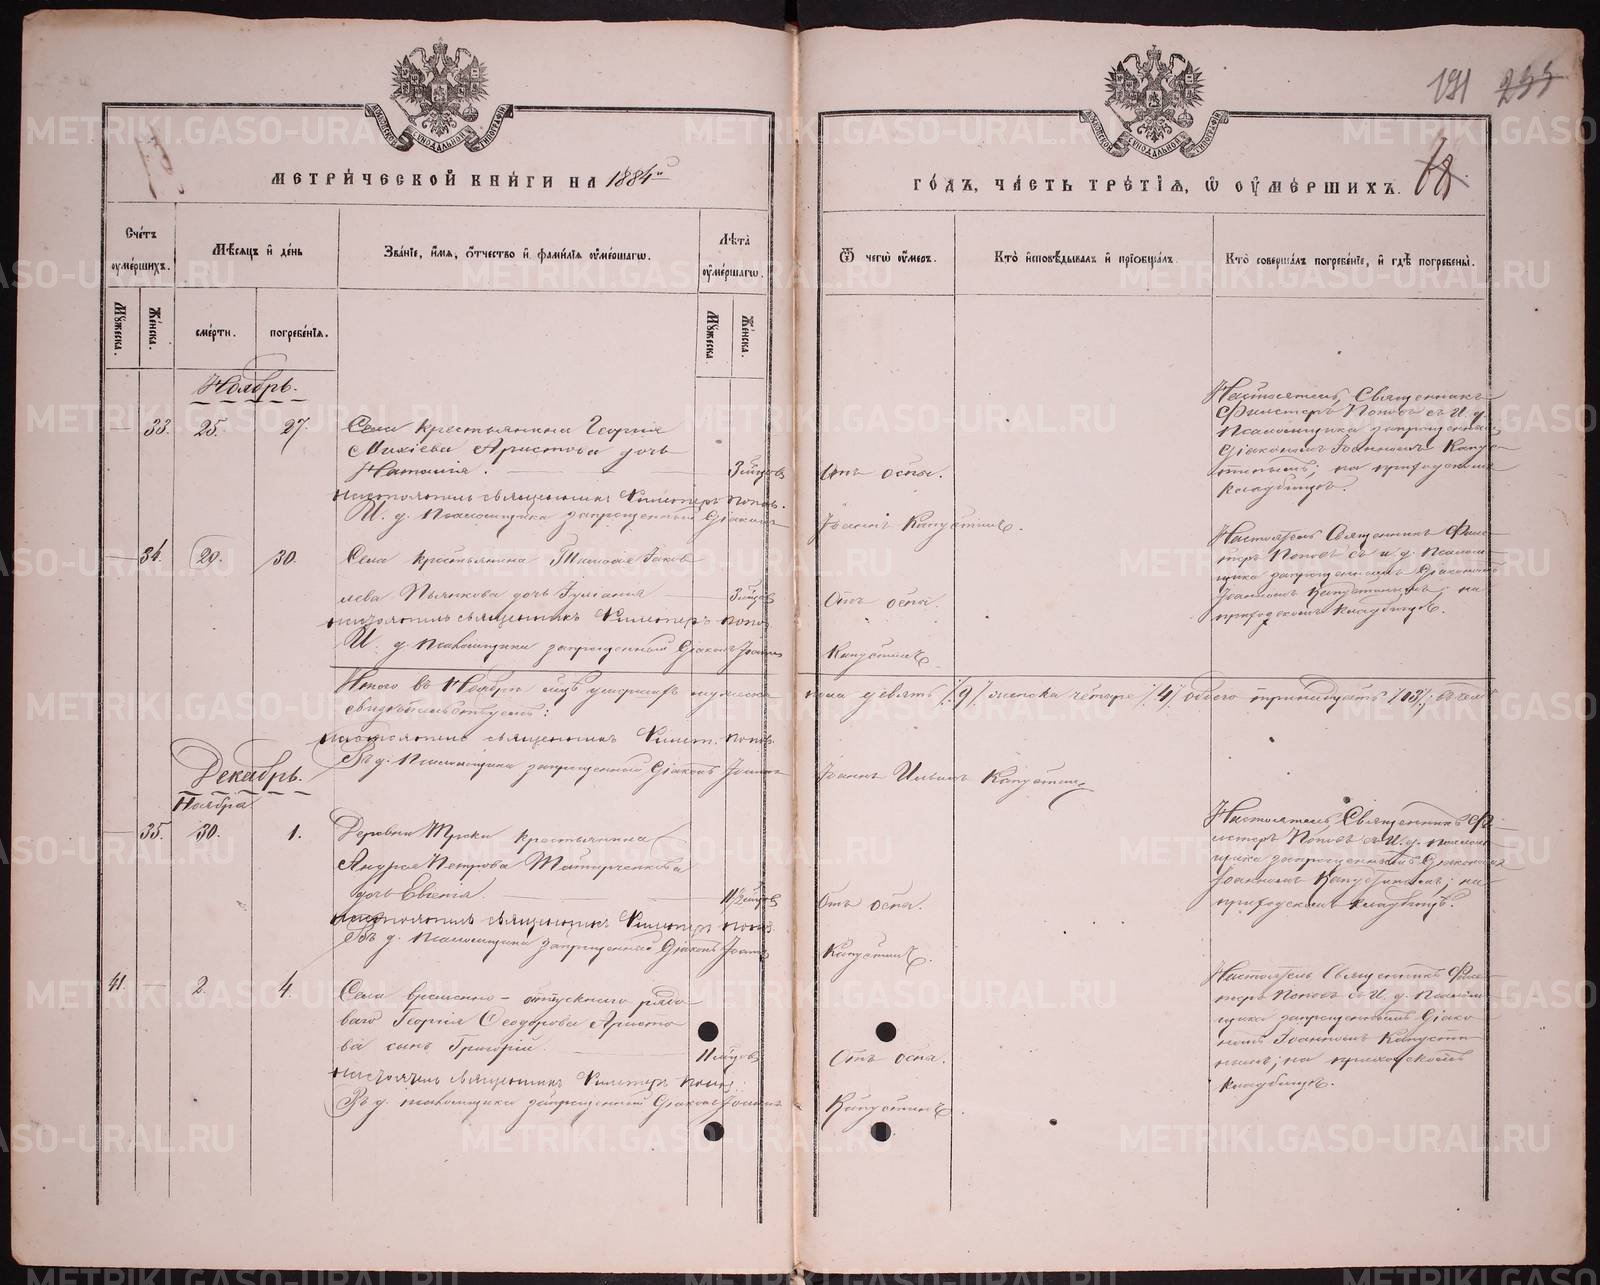 191 255
68
МЕТРИЧЕСКОЙ КНИГИ НА 1884й
ГОДЪ, ЧАСТЬ ТРЕТІЯ, Ѡ ОУМЕРШИХЪ.
Счетъ оумершихъ.
Мѣсяцъ и день
Званіе, имя, отчество и фамилія оумершагѡ.
Лѣта оумершагѡ.
Ѿ чегѡ оумеръ.
Кто исповѣдывалъ и пріобщалъ.
Кто совершалъ погребеніе, и гдѣ погребены.
Мужеска.
Женска.
смерти.
погребенія.
Мужеска
Женска.
Ноябрь.
33. 25. 27.
Села крестьянина Георгія
Михіева Аристова дочь
Наталія.
3 мѣцов
Отъ оспы.
Настоятель Священникъ
Филитеръ Поповъ съ И. д.
Псаломщика запрещеннымъ
Діакономъ Іоанномъ Капус-
тинымъ; на приходскомъ
кладбищѣ.
настоятель священникъ Филитеръ Поповъ.
И. д. Псаломщика запрещенный Діаконъ
Іоаннъ Капустинъ.
34. 20. 30.
Села крестьянина Яков
лева Пьянкова дочь Іуліанія
3 мѣцов
Отъ оспы.
Настоятель Священникъ Фили-
теръ Поповъ съ и. д. Псалом-
щика запрещеннымъ Діакономъ
Іоанномъ Капустинымъ; на
приходскомъ кладбищѣ.
настоятель священникъ Филитеръ Попов.
И. д. Псаломщика запрещенный Діаконъ Іоаннъ
Капустинъ.
Итого въ Ноябрѣ мцѣ умершихъ мужеска
пола девять /9/ женска четыре /4/ обоего тринадцать /13/; въ чемъ
свидѣтельствуемъ:
настоятель священникъ Филит. Попов.
Въ д. Псаломщика запрещенный Діаконъ Іоаннъ
Іоаннъ Капустинъ
Декабрь.
Ноября
35. 30. 1.
Деревни крестьянина
Андрея Петрова
дочь Евгенія.
1 1/2 мѣцов
Отъ оспы.
Настоятель Священникъ Фи-
литеръ Поповъ съ И. д. Псалом-
щика запрещеннымъ Діакономъ
Іоанномъ Капустинымъ; на
приходскомъ кладбищѣ.
настоятель священникъ Филитер. Попов.
Въ д. Псаломщика запрещенный Діаконъ Іоаннъ
Капустинъ.
41. 2. 4.
Села временно-отпускного рядо-
ваго Георгія Ѳеодорова Аристо-
ва сынъ Григорій.
11 мѣцов
Отъ оспы.
Настоятель Священникъ Фили-
теръ Поповъ съ И. д. Псалом-
щика запрещеннымъ Діако-
номъ Іоанномъ Капусти-
нымъ; на приходскомъ
кладбищѣ.
настоятель священникъ Филитеръ Попов.
Въ д. псаломщика запрещенный Діаконъ Іоаннъ
Капустинъ.
METRIKI.GASO-URAL.RU